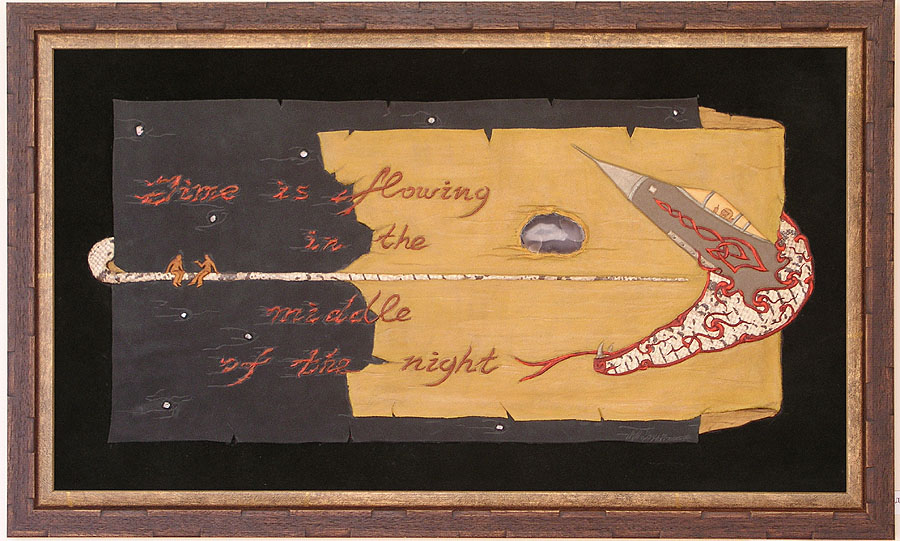 Time is flowing
in the
middle
of the night